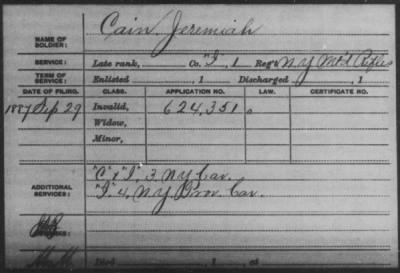 NAME OF SOLDIER: Cain, Jeremiah
SERVICE: Late rank, Co. "I", 1 Reg't N.Y. Mt'd Rifles
TERM OF SERVICE: Enlisted , 1 Discharged , 1
DATE OF FILING. CLASS. APPLICATION NO. LAW. CERTIFICATE NO.
1887 Sep 29 Invalid, 624,351
Widow,
Minor,
ADDITIONAL SERVICES: "C" & "I", 3 N.Y. Cav.
"I" 4, N.Y. Prov. Cav.
Died , 1 , at